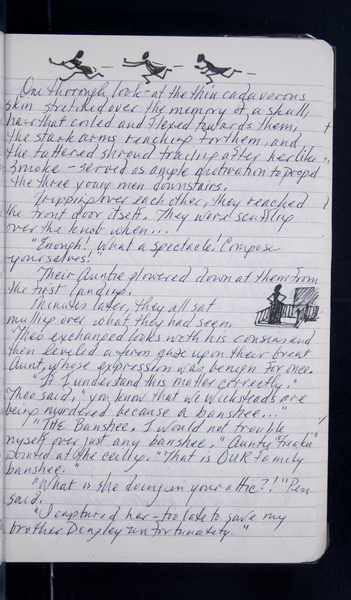 One thorough look at the thin cadaverous
skin stretched over the memory of a skull,
hair that coiled and flexed towards them,
the stark arms reaching for them, and
the tattered shroud trailing after her like
smoke - served as ample motivation to propel
the three young men downstairs.
Tripping over each other, they reached
the front door itself. They were scuffling
over the knob when...
"Enough! What a spectacle! Compose
yourselves!"
Their Auntie glowered down at them from
the first landing.
Minutes later, they all sat
mulling over what they had seen.
Theo exchanged looks with his cousins and
then leveled a firm gaze upon their great
Aunt, whose expression was benign for once.
"If I understand this matter correctly,"
Theo said, "you know that we Wicksteads are
being murdered because a banshee..."
"THE Banshee. I would not trouble
myself over just any banshee." Aunty
pointed at the ceiling. "That is OUR family
banshee."
"What is she doing in your attic?!" Pen
said.
"I captured her - too late to save my
brother Dingley unfortunately."